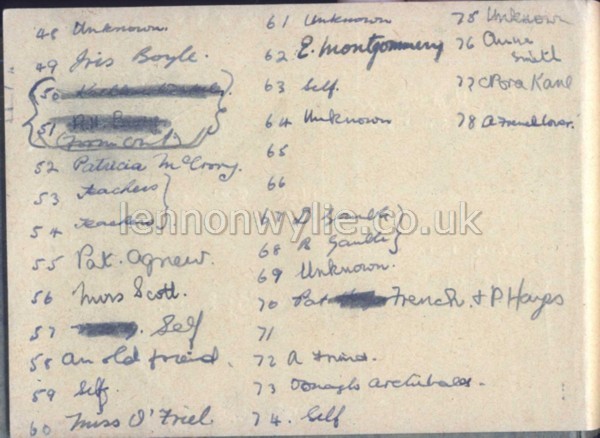 48 Unknown.
49 Iris Boyle.
50
51 Pat
(torn out)
52 Patricia McCrory.
53 teachers
54 teachers
55 Pat. Agnew.
56 Miss Scott.
57 Self
58 An old friend.
59 Self.
60 Miss O'Friel
61 Unknown
62 E. Montgommery
63 Self.
64 Unknown
65
66
67 D Gault
68 R Gault
69 Unknown.
70 Pat French. & P Hayes
71
72 A friend.
73 Archibald.
74. Self
75 Unknown
76 Anne
Smith
77 Kane
78 A French lover.
lennonwylie.co.uk